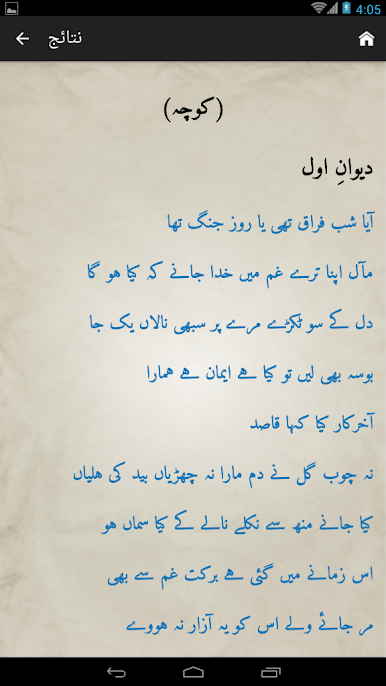 4:05
نتائج
(کوچہ)
دیوانِ اول
آیا شب فراق تھی یا روز جنگ تھا
مآل اپنا ترے غم میں خدا جانے کہ کیا ہو گا
دل کے سو ٹکڑے مرے پر سبھی نالاں یک جا
بوسہ بھی لیں تو کیا ہے ایمان ہے ہمارا
آخرکار کیا کہا قاصد
نہ چوب گل نے دم مارا نہ چھڑیاں بید کی ہلیاں
کیا جانے منھ سے نکلے نالے کے کیا سماں ہو
اس زمانے میں گئی ہے برکت غم سے بھی
مر جائے ولے اس کو یہ آزار نہ ہووے